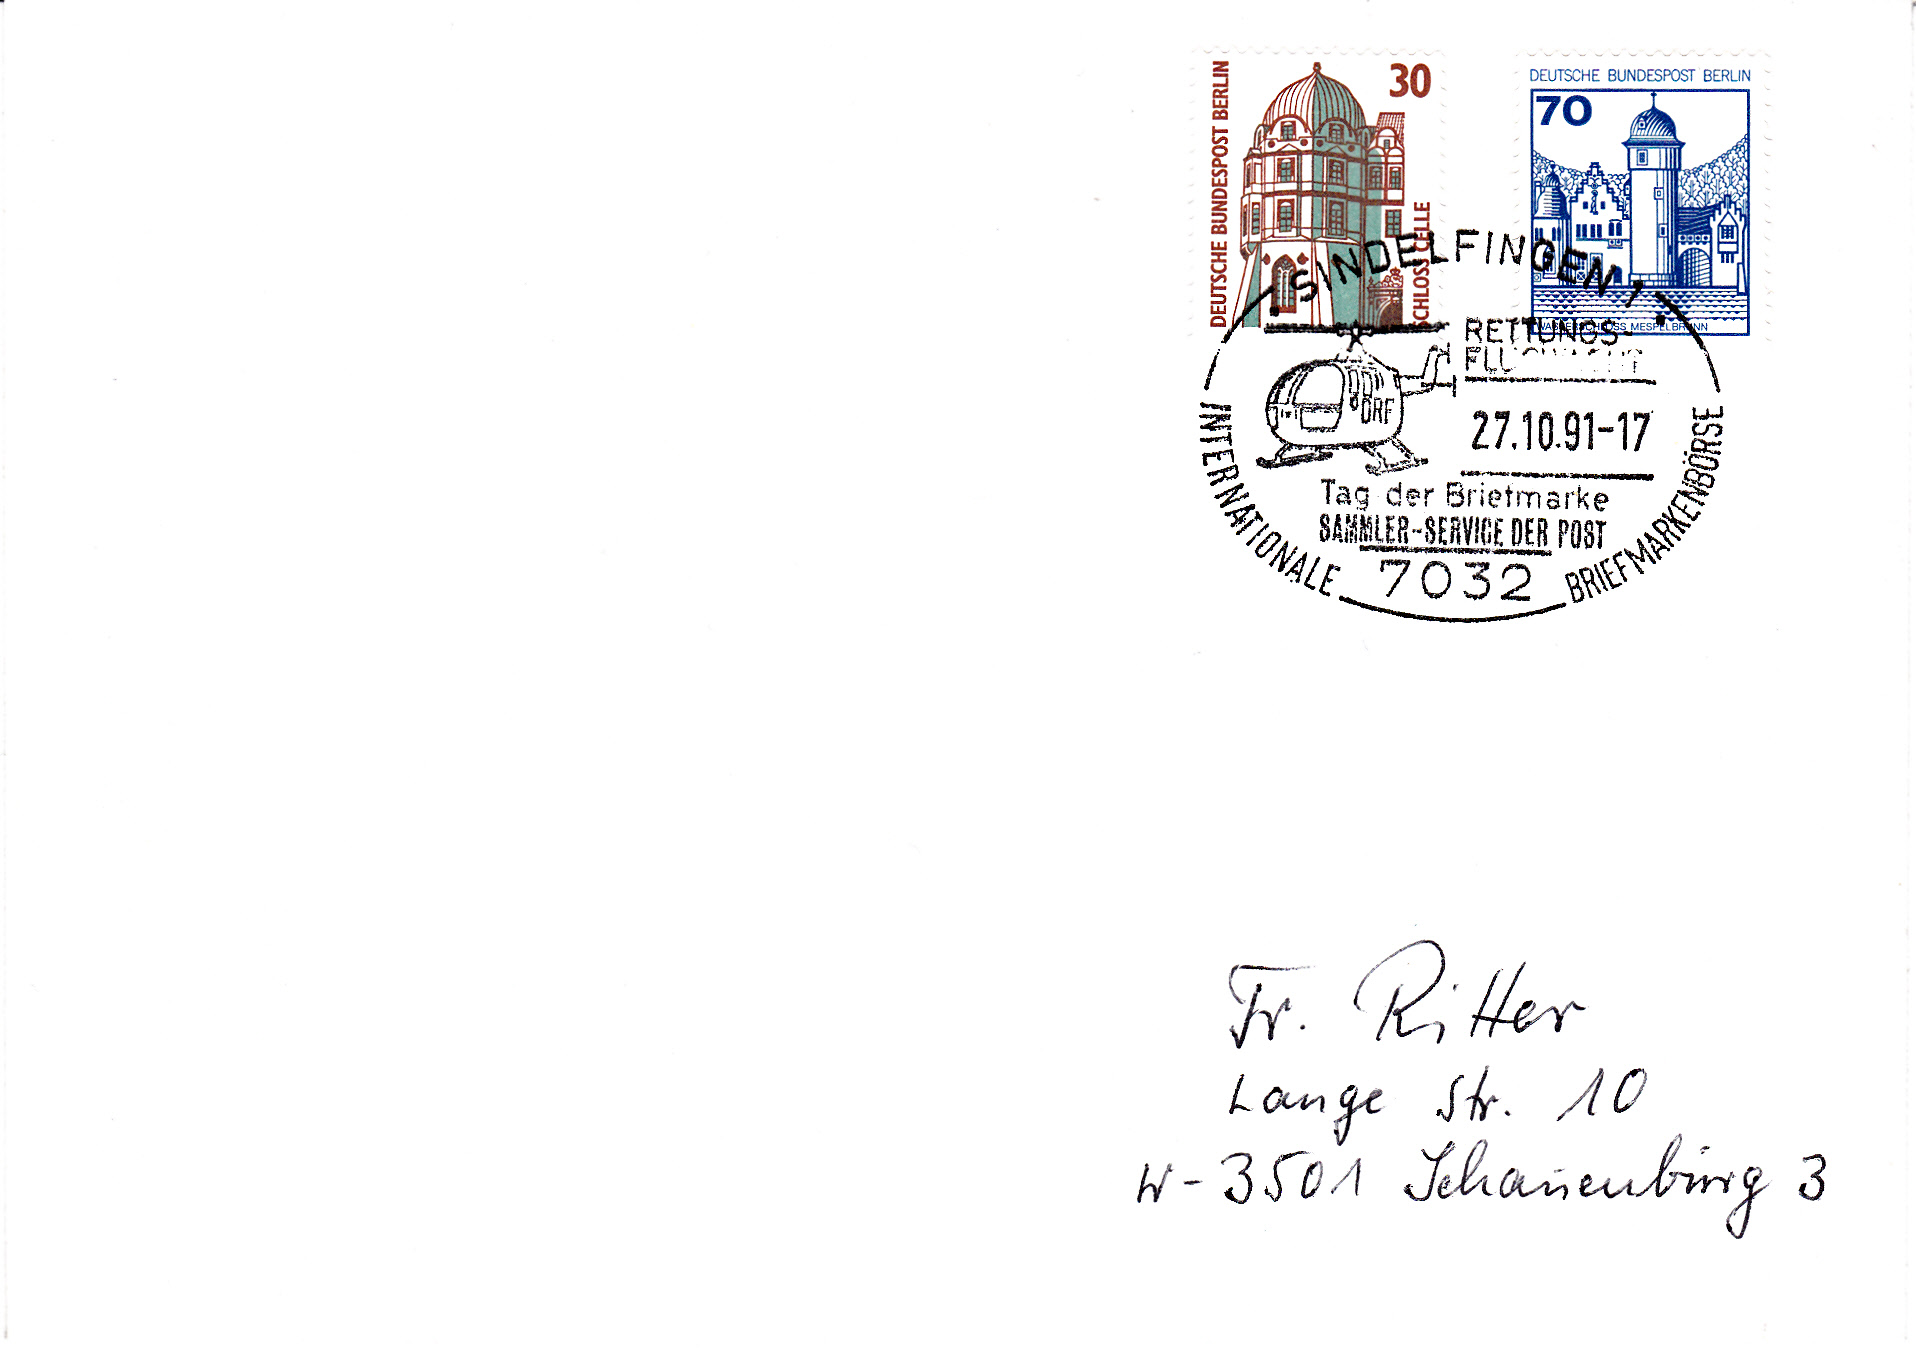 DEUTSCHE BUNDESPOST BERLIN
30
SCHLOSS CELLE
DEUTSCHE BUNDESPOST BERLIN
70
WASSERSCHLOSS MESPELBRUNN
SINDELFINGEN 1
RETTUNGS-
FLUGWACHT
DRF
27.10.91-17
Tag der Briefmarke
SAMMLER-SERVICE DER POST
7032
INTERNATIONALE BRIEFMARKENBÖRSE
Fr. Ritter
Lange Str. 10
W-3501 Schauenburg 3